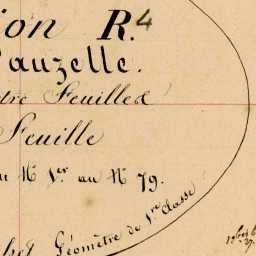 ion R.4
auzelle.
tre Feuilles
Feuille
u N° 1er au N° 79.
Géomètre de 1re Classe